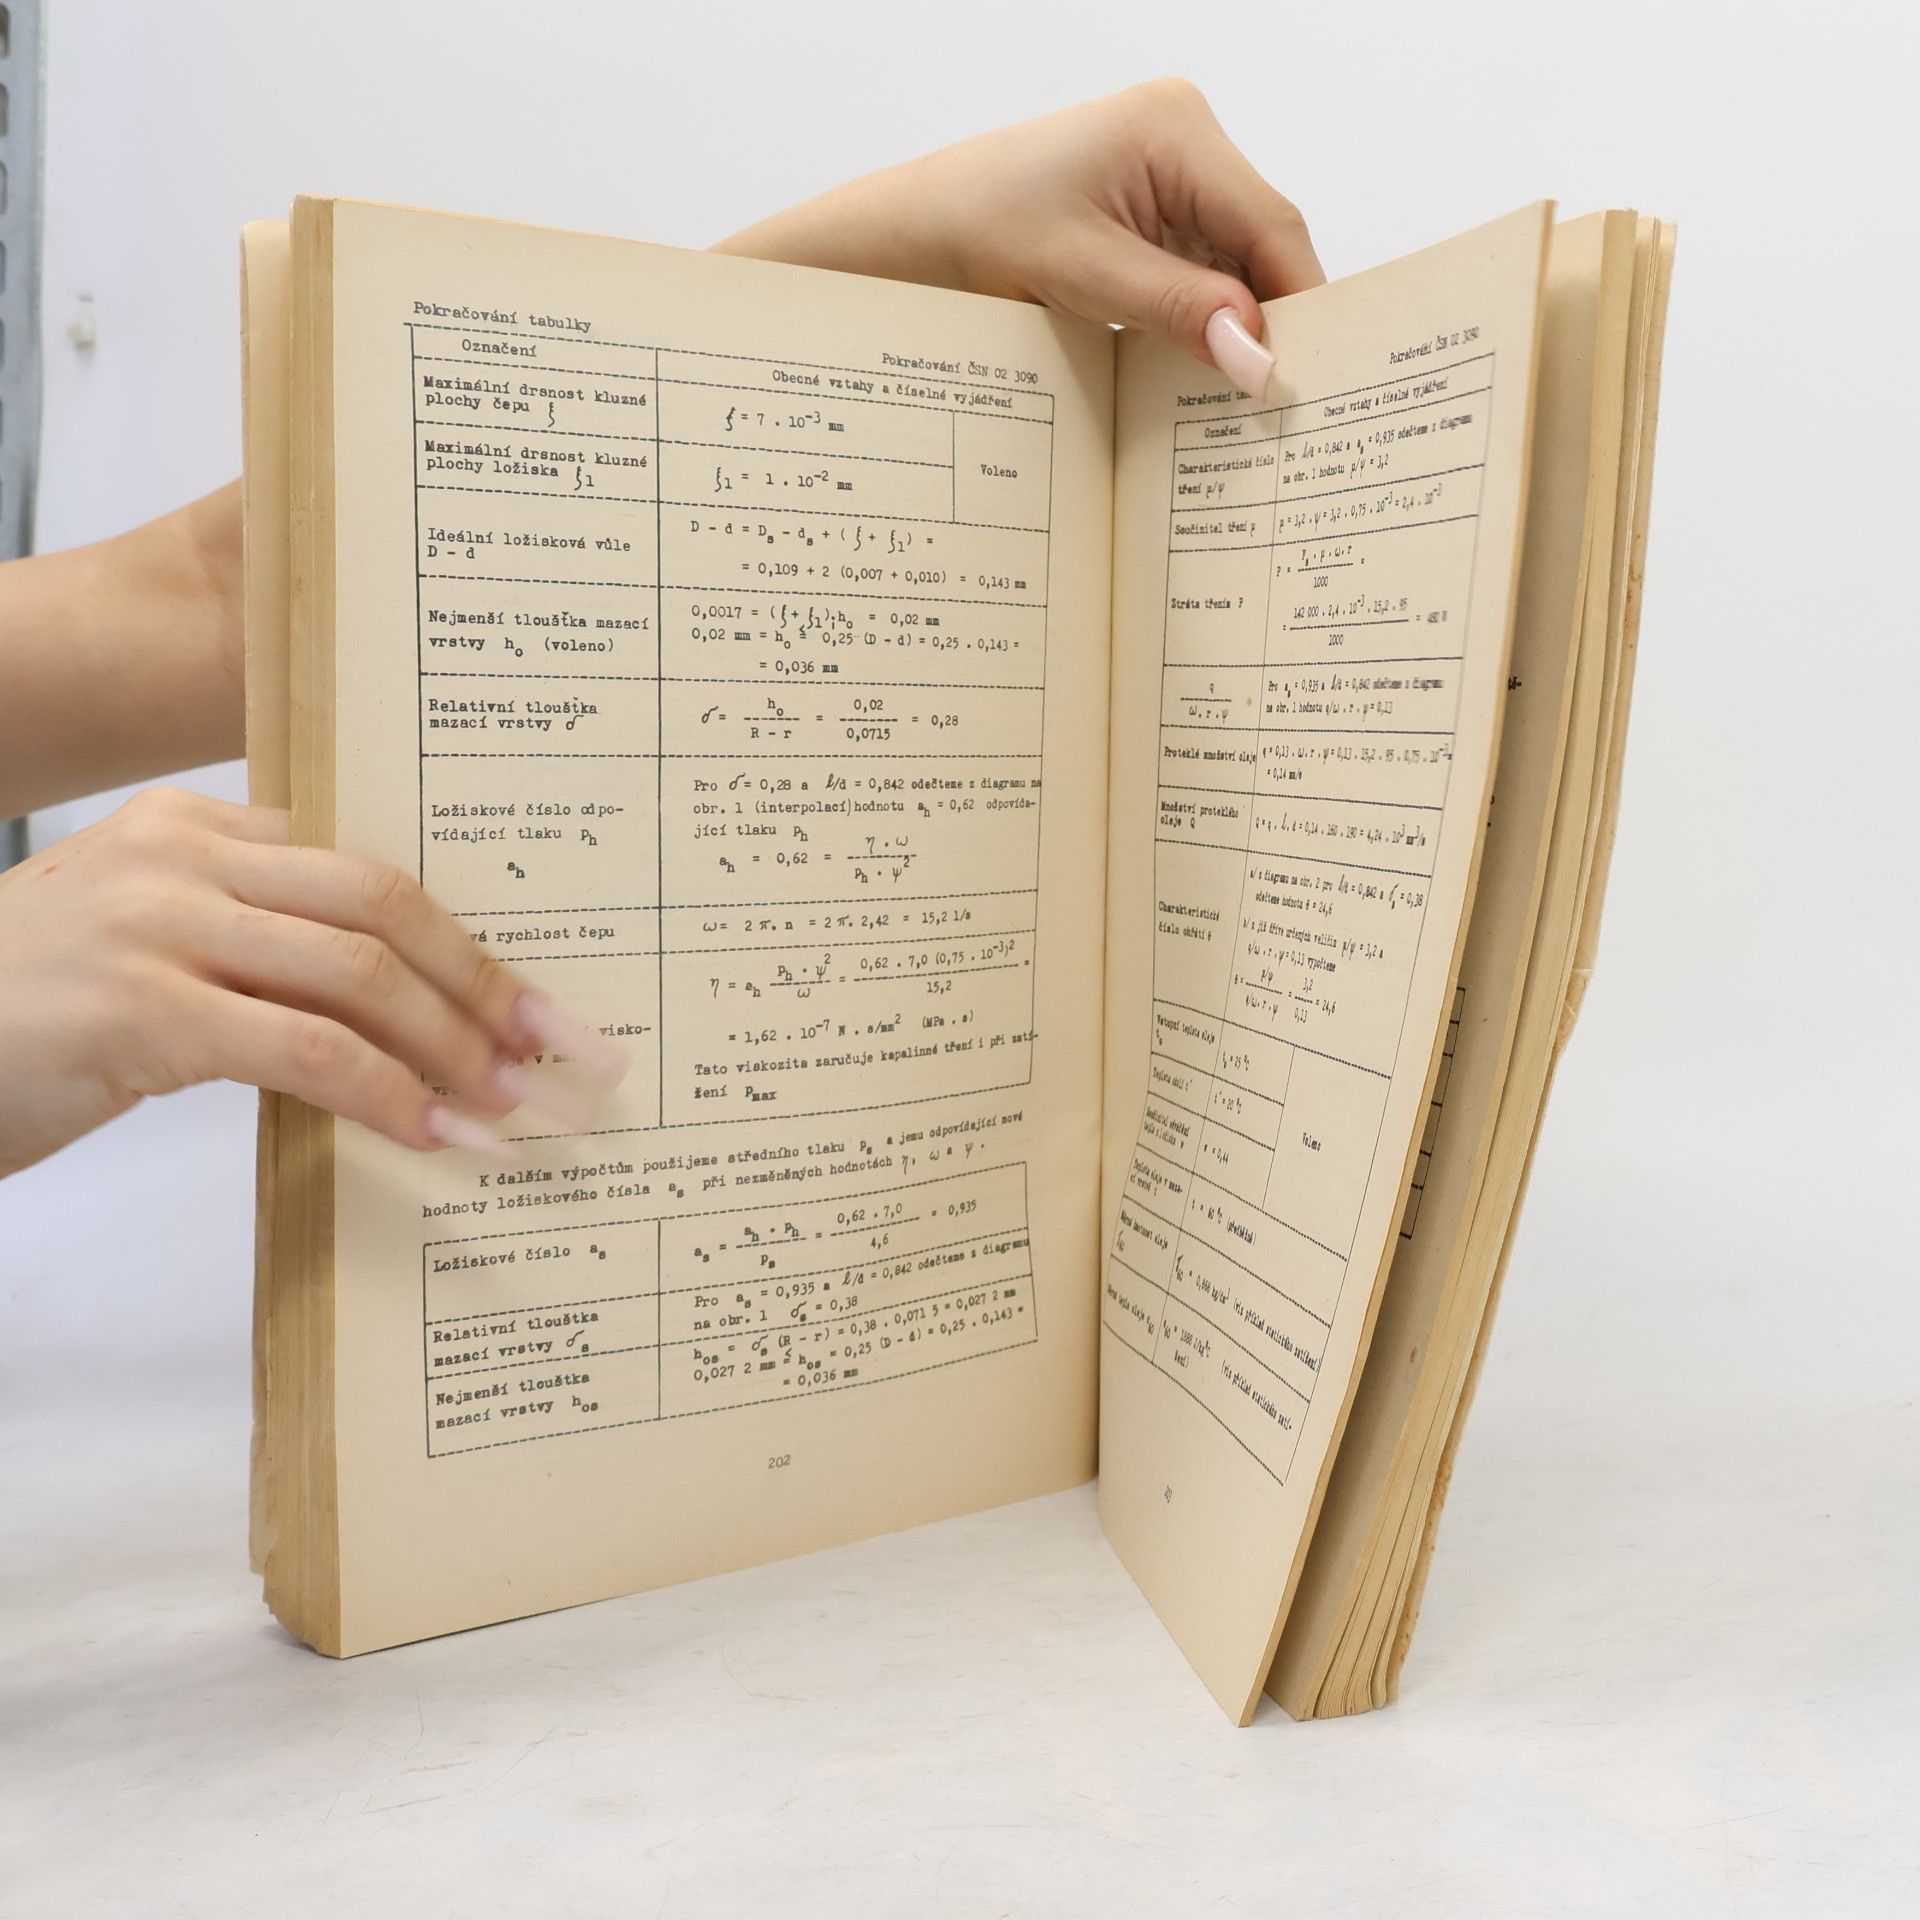 Pokračování tabulky
Pokračování ČSN 02 3090
Označení
Obecné vztahy a číselné vyjádření
Maximální drsnost kluzné
plochy čepu ξ
ξ = 7 . 10⁻³ mm
Voleno
Maximální drsnost kluzné
plochy ložiska ξ₁
ξ₁ = 1 . 10⁻² mm
Ideální ložisková vůle
D - d
D - d = Dₛ - dₛ + (ξ + ξ₁) =
= 0,109 + 2 (0,007 + 0,010) = 0,143 mm
Nejmenší tloušťka mazací
vrstvy h₀ (voleno)
0,0017 = (ξ + ξ₁);h₀ = 0,02 mm
0,02 mm = h₀ ≦ 0,25 (D - d) = 0,25 . 0,143 =
= 0,036 mm
Relativní tloušťka
mazací vrstvy σ
σ = h₀ / (R - r) = 0,02 / 0,0715 = 0,28
Ložiskové číslo odpo-
vídající tlaku pₕ
aₕ
Pro σ = 0,28 a ℓ/d = 0,842 odečteme z diagramu na
obr. 1 (interpolací) hodnotu aₕ = 0,62 odpovída-
jící tlaku pₕ
aₕ = 0,62 = η . ω / pₕ . ψ²
rychlost čepu
ω = 2 π. n = 2 π. 2,42 = 15,2 1/s
visko-
v
η = aₕ pₕ . ψ² / ω = 0,62 . 7,0 (0,75 . 10⁻³)² / 15,2 =
= 1,62 . 10⁻⁷ N . s/mm² (MPa . s)
Tato viskozita zaručuje kapalinné tření i při zatí-
žení pmax
K dalším výpočtům použijeme středního tlaku pₛ a jemu odpovídající nové
hodnoty ložiskového čísla aₛ při nezměněných hodnotách η, ω a ψ.
Ložiskové číslo aₛ
aₛ = aₕ . pₕ / pₛ = 0,62 . 7,0 / 4,6 = 0,935
Relativní tloušťka
mazací vrstvy σₛ
Pro aₛ = 0,935 a ℓ/d = 0,842 odečteme z diagramu
na obr. 1 σₛ = 0,38
Nejmenší tloušťka
mazací vrstvy hₒₛ
hₒₛ = σₛ (R - r) = 0,38 . 0,071 5 = 0,027 2 mm
0,027 2 mm ≦ hₒₛ = 0,25 (D - d) = 0,25 . 0,143 =
= 0,036 mm
202
Pokračování
Pokračování ČSN 02 3090
Označení
Obecné vztahy a číselné vyjádření
Charakteristické číslo
tření μ/ψ
Pro ℓ/d = 0,842 a aₛ = 0,935 odečteme z diagramu
na obr. 1 hodnotu μ/ψ = 3,2
Součinitel tření μ
μ = 3,2 . ψ = 3,2 . 0,75 . 10⁻³ = 2,4 . 10⁻³
Ztráta třením P
P = Pₛ . μ . ω . r / 1000 =
= 142 000 . 2,4 . 10⁻³ . 15,2 . 95 / 1000 =
q / ω . r . ψ
Pro aₛ = 0,935 a ℓ/d = 0,842 odečteme z diagramu
na obr. 1 hodnotu q/ω . r . ψ = 0,13
Proteklé množství oleje
q = 0,13 . ω . r . ψ = 0,13 . 15,2 . 95 . 0,75 . 10⁻³ =
= 0,14 mm/s
Množství proteklého
oleje Q
Q = q . ℓ . d = 0,14 . 160 . 190 = 4,24 . 10³ mm³/s
Charakteristické
číslo ohřátí θ
a/ z diagramu na obr. 2 pro ℓ/d = 0,842 a σₛ = 0,38
odečteme hodnotu θ = 24,6
b/ z již dříve určených veličin μ/ψ = 3,2 a
q/ω . r . ψ = 0,13 vypočteme
θ = μ/ψ / q/ω . r . ψ = 3,2 / 0,13 = 24,6
Vstupní teplota oleje
t₀
t₀ = 25 °C
Voleno
Teplota okolí t´
t´ = 20 °C
= 0,44
Teplota oleje v maza-
cí vrstvě t
t = 60 °C (předběžně)
Měrná hmotnost oleje
(viz příklad statického zatížení)
Měrné teplo oleje c₆₀
(viz příklad statického zatí-
žení)